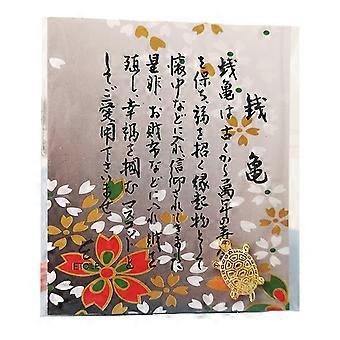 銭亀
銭亀は古くから萬年の寿
を保ち福を招く縁起物として
懐中などに入れ信仰されてきました
是非、お財布などに入れ財を
殖し幸福を掴むマスコットと
してご愛用下さいませ